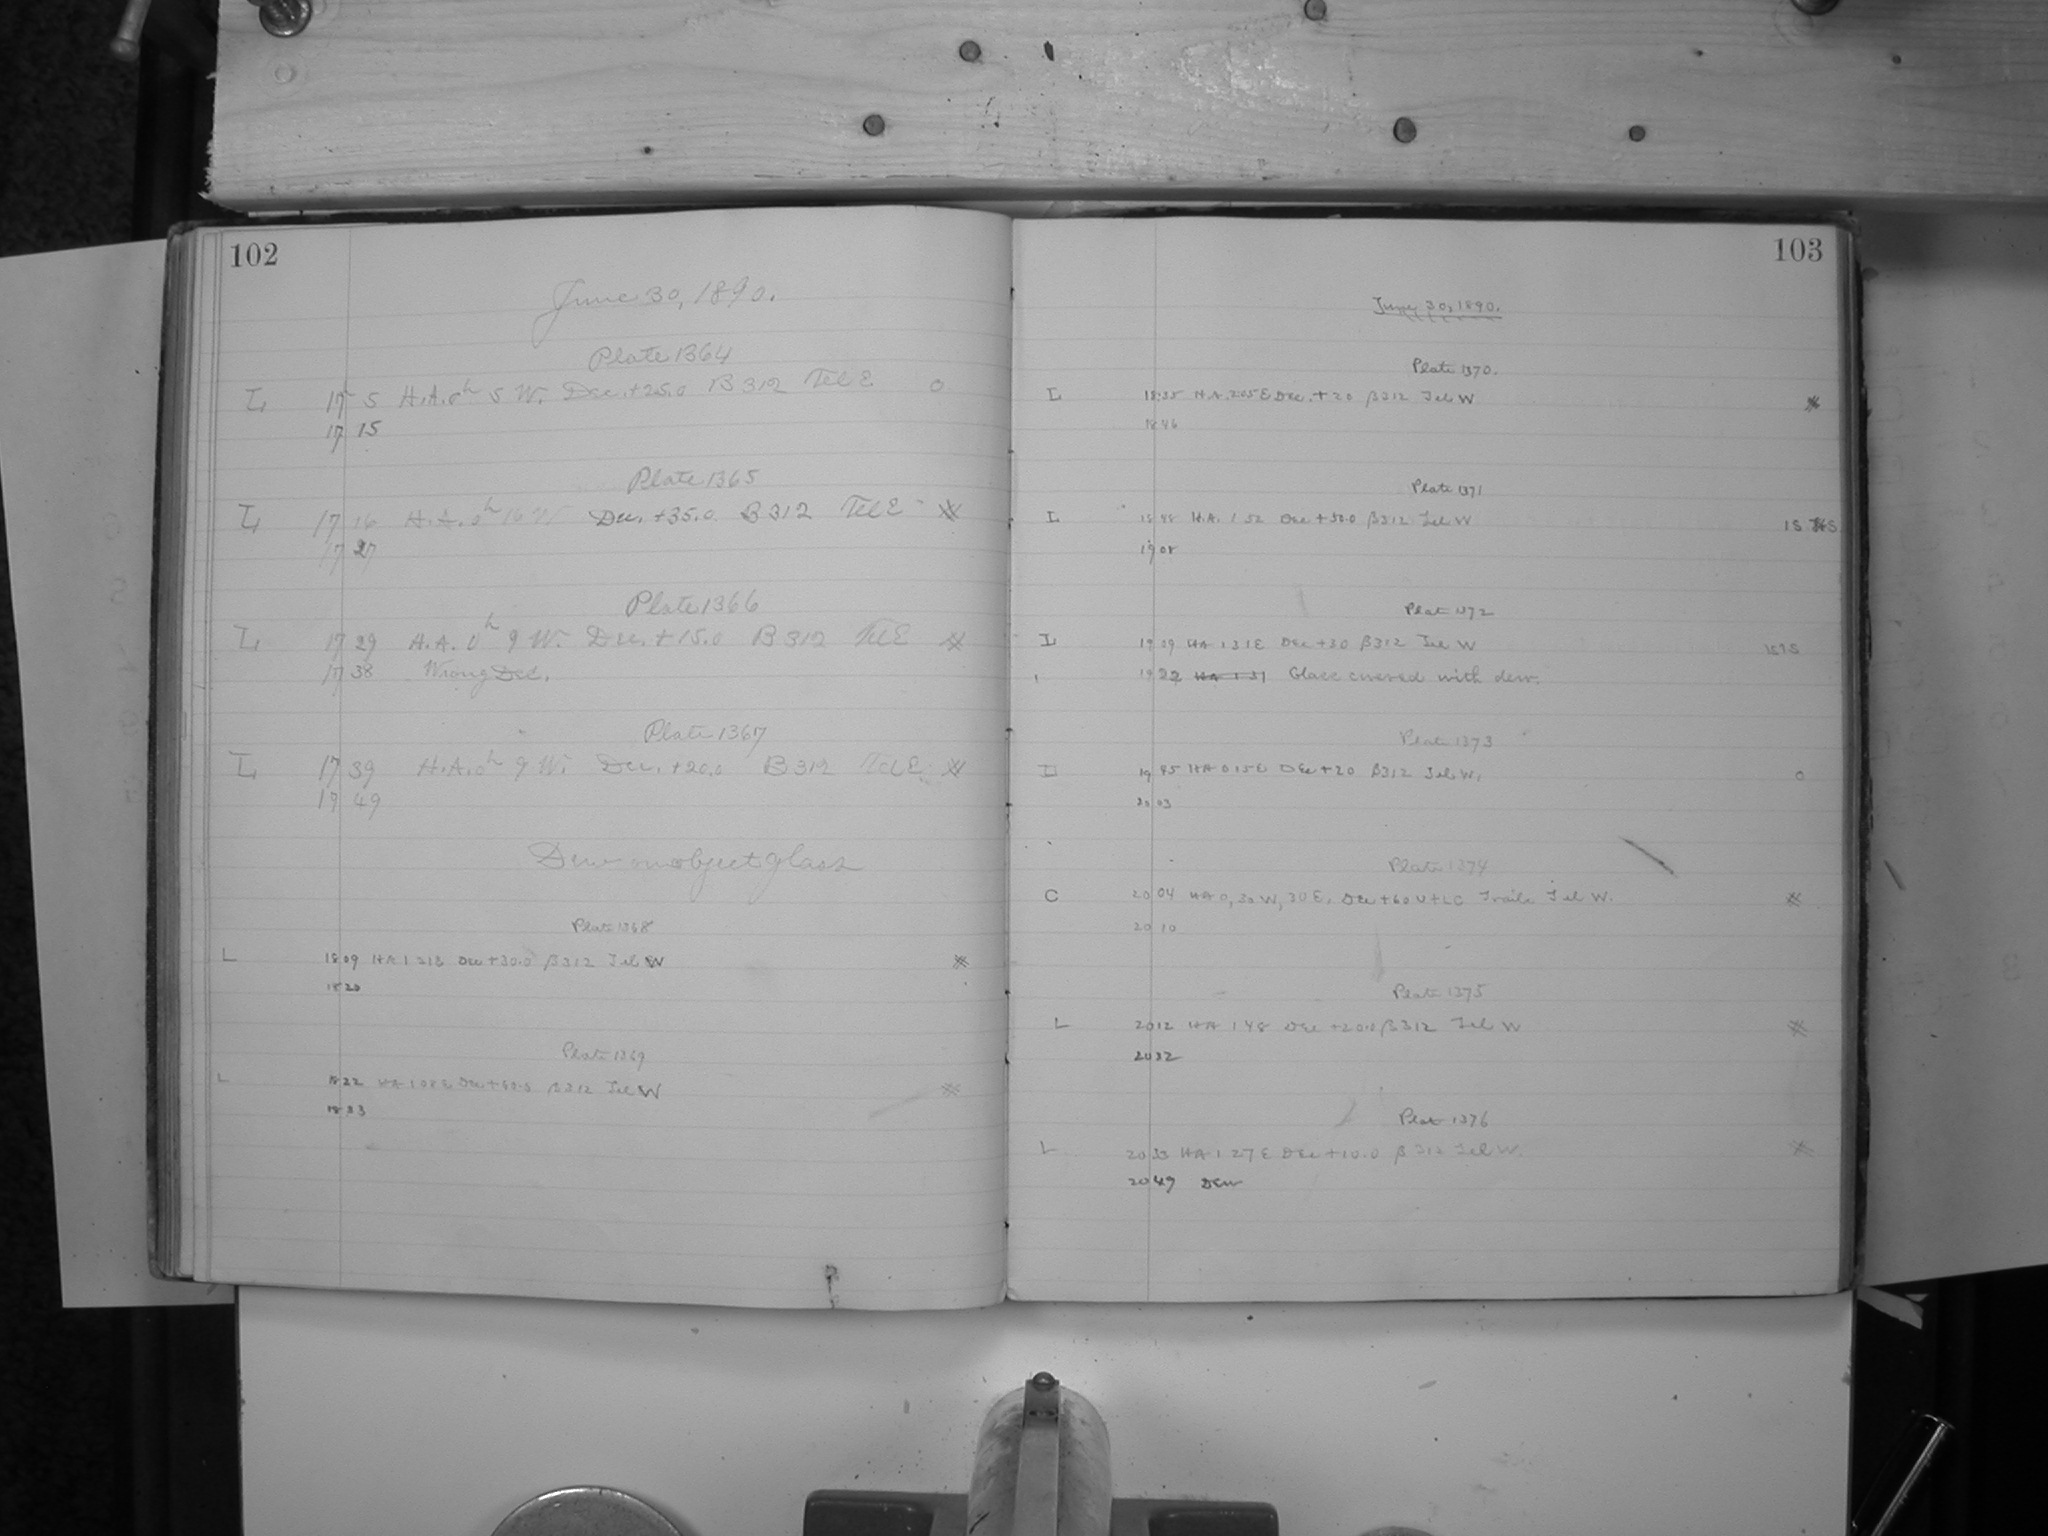 102
June 30, 1890.
Plate 1364
L 17 5 H.A. 0h 5 W. Dec. +25.0 B 312 Tel E 0
17 15
Plate 1365
L 17 16 H.A. 0h 16 W Dec. +35.0 B 312 Tel E
17 27
Plate 1366
L 17 29 H.A. 0h 9 W. Dec. +15.0 B 312 Tel E
17 38 Wrong Dec.
Plate 1367
L 17 39 H.A. 0h 9 W. Dec. +20.0 B 312 Tel E
17 49
Dew on object glass
Plate 1368
L 18 09 HA 1 21E Dec +30.0 B312 Tel W
18 20
Plate 1369
L 18 22 HA 1 08 E Dec +60.0 B312 Tel W
18 33
103
June 30, 1890.
Plate 1370.
L 18 35 H.A. 2 05 E Dec. +20 B312 Tel W
18 46
Plate 1371
L 18 48 H.A. 1 52 Dec +50.0 B312 Tel W
19 08
Plate 1372
L 19 09 HA 1 31E Dec +30 B312 Tel W
19 22 HA 1 31 Glass covered with dew.
Plate 1373
L 19 45 HA 0 15 E Dec +20 B312 Tel W. 0
20 03
Plate 1374
C 20 04 HA 0, 30 W, 30 E. Dec +60 U+LC Trails Tel W.
20 10
Plate 1375
L 20 12 HA 1 48 Dec +20.0 B312 Tel W
20 32
Plate 1376
L 20 33 HA 1 27 E Dec +10.0 B 312 Tel W.
20 49 Dew